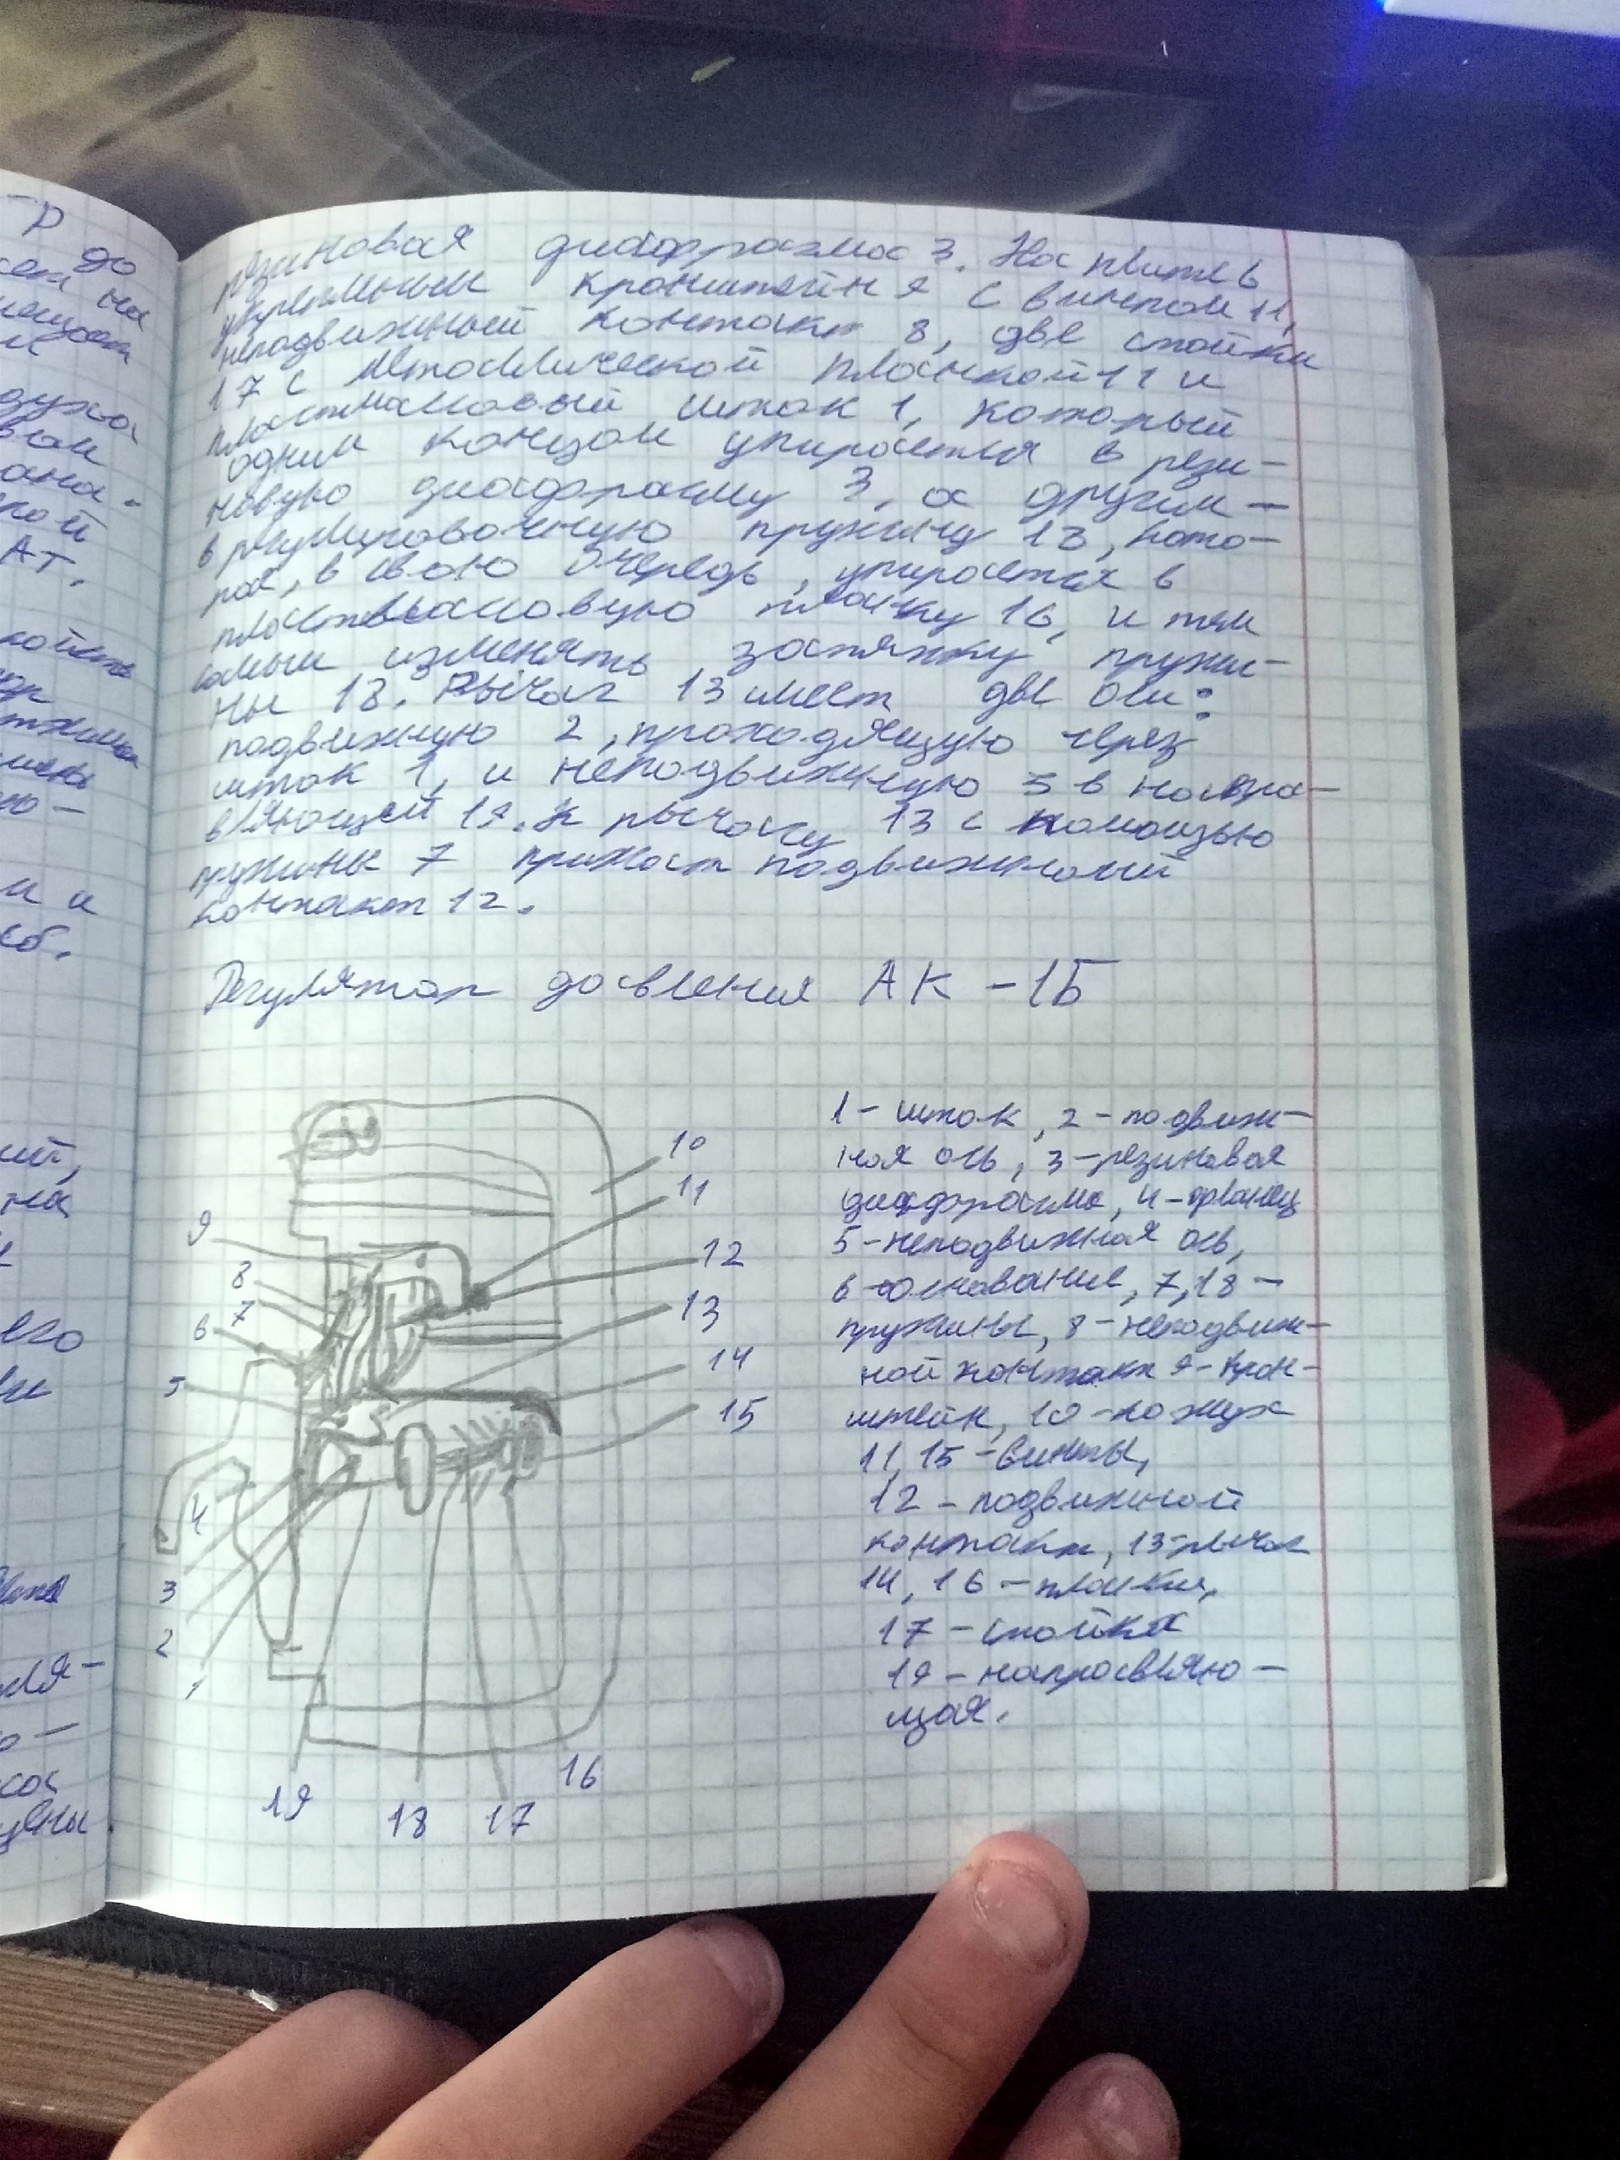 резиновая диафрагма 3. На плите 6
укреплены кронштейн 9 с винтом 11,
неподвижный контакт 8, две стойки
17 с металлической планкой 11 и
пластмассовый шток 1, который
одним концом упирается в рези-
новую диафрагму 3, а другим -
в регулировочную пружину 18, кото-
рая, в свою очередь, упирается в
пластмассовую планку 16, и тем
самым изменять затяжку пружи-
ны 18. Рычаг 13 имеет две оси:
подвижную 2, проходящую через
шток 1, и неподвижную 5 в напра-
вляющей 19. К рычагу 13 с помощью
пружины 7 прижат подвижный
контакт 12.
Регулятор давления АК - 1Б
1 - шток, 2 - подвиж-
ная ось, 3 - резиновая
диафрагма, 4 - фланец
5 - неподвижная ось,
6 - основание, 7, 18 -
пружины, 8 - неподвиж-
ной контакт 9 - крон-
штейн, 10 - кожух
11, 15 - винты,
12 - подвижной
контакт, 13 - рычаг
14, 16 - планки,
17 - стойка
19 - направляю-
щая.
10
11
9
12
8
7
13
6
14
5
15
4
3
2
1
16
19
18
17
-р до
на
АТ.
ю -
и и
его